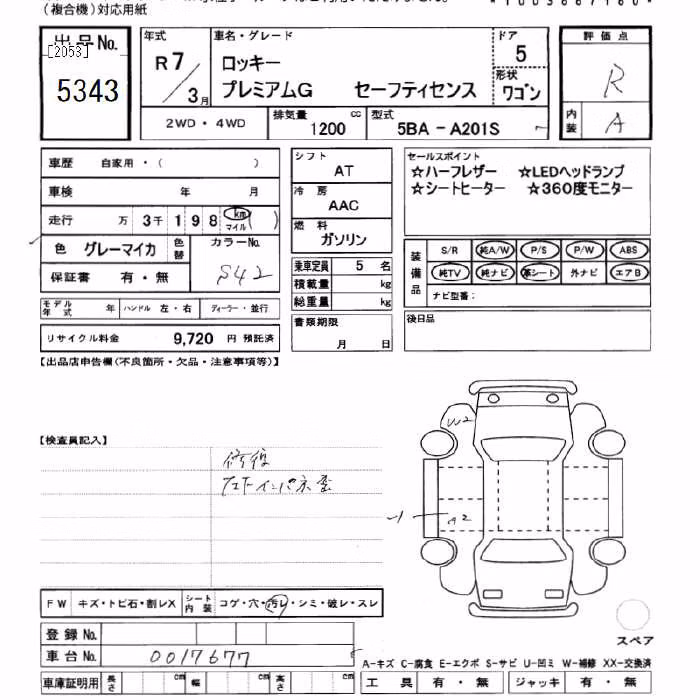 (複合機)対応用紙
*1003667160*
出品No.
[2053]
5343
年式
R7/3月
車名・グレード
ロッキー
プレミアムG セーフティセンス
ドア
5
形状
ワゴン
評価点
R
内装
A
2WD・4WD
排気量
1200 cc
型式
5BA - A201S
車歴 自家用・( )
車検 年 月
走行 万 3千198 km マイル ( )
色 グレーマイカ
色替
カラーNo.
S42
保証書 有・無
シフト
AT
冷房
AAC
燃料
ガソリン
乗車定員 5 名
積載量 kg
総重量 kg
書類期限
月 日
セールスポイント
☆ハーフレザー ☆LEDヘッドランプ
☆シートヒーター ☆360度モニター
装備品
S/R 純A/W P/S P/W ABS
純TV 純ナビ 革シート 外ナビ エアB
ナビ型番:
後日品
モデル年式 年 ハンドル 左・右 ディーラー・並行
リサイクル料金 9,720 円 預託済
【出品店申告欄(不良箇所・欠品・注意事項等)】
【検査員記入】
修復
W2
A2
FW キズ・トビ石・割レX
シート内装 コゲ・穴・汚レ・シミ・破レ・スレ
登録No.
車台No. 0017677
車庫証明用 長さ cm 幅 cm 高さ cm
スペア
A-キズ C-腐食 E-エクボ S-サビ U-凹ミ W-補修 XX-交換済
工具 有・無 ジャッキ 有・無